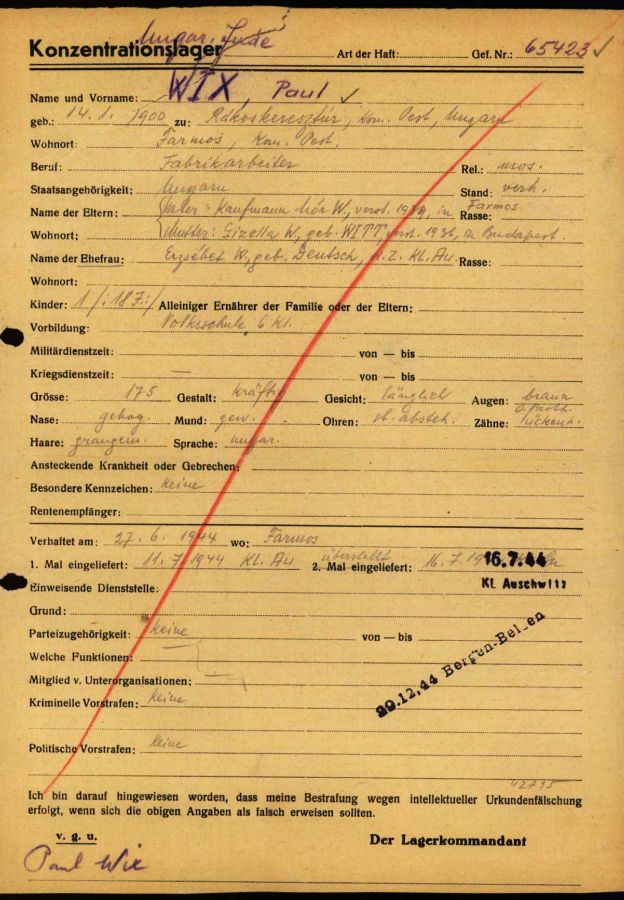 Ungar. Jude
Konzentrationslager Art der Haft: Gef. Nr.: 65423
Name und Vorname: WIX, Paul
geb.: 14.1.1900 zu: Rákoskeresztúr, Kom. Pest, Ungarn
Wohnort: Farmos, Kom. Pest,
Beruf: Fabrikarbeiter Rel.: mos.
Staatsangehörigkeit: Ungarn Stand: verh.
Name der Eltern: Vater: Kaufmann Mór W., verst. in Farmos Rasse:
Wohnort: Mutter: Gizella W. geb. WITT, verst. 1936, in Budapest.
Name der Ehefrau: Erzsébet W. geb. Deutsch, z. Z. KL. Au. Rasse:
Wohnort:
Kinder: 1 /:18J:/ Alleiniger Ernährer der Familie oder der Eltern:
Vorbildung: Volksschule 6 Kl.
Militärdienstzeit: — von — bis
Kriegsdienstzeit: — von — bis
Grösse: 175 Gestalt: kräftig Gesicht: länglich Augen: braun
Nase: gebog. Mund: gew. Ohren: absteh. Zähne: lückenh.
Haare: graumel. Sprache: ungar.
Ansteckende Krankheit oder Gebrechen:
Besondere Kennzeichen: keine
Rentenempfänger:
Verhaftet am: 27.6.1944 wo: Farmos
1. Mal eingeliefert: 11.7.1944 KL. Au überstellt 2. Mal eingeliefert: 16.7.19 16.7.44
KL Auschwitz
Einweisende Dienststelle:
Grund:
Parteizugehörigkeit: keine von — bis
Welche Funktionen: —
29.12.44 Bergen-Belsen
Mitglied v. Unterorganisationen: —
Kriminelle Vorstrafen: keine
Politische Vorstrafen: keine
42795
Ich bin darauf hingewiesen worden, dass meine Bestrafung wegen intellektueller Urkundenfälschung
erfolgt, wenn sich die obigen Angaben als falsch erweisen sollten.
v. g. u. Der Lagerkommandant
Paul Wix